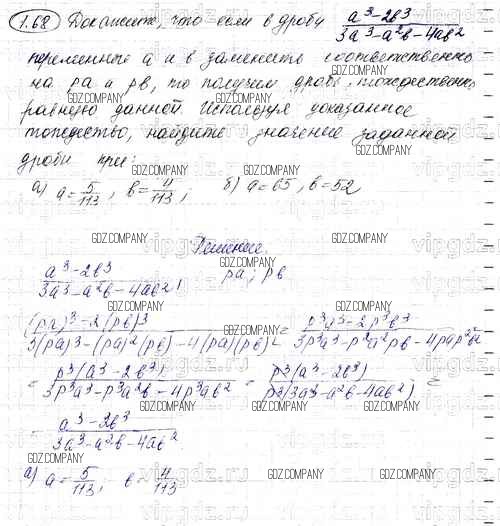 1.68 Докажите, что если в дроби (a³-2b³)/(3a³-a²b-4ab²)
переменные a и b заменить соответственно
на pa и pb, то получим дробь, тождественно
равную данной. Используя доказанное
тождество, найдите значение заданной
дроби при:
а) a=5/113, b=4/113; б) a=65, b=52
Решение.
(a³-2b³)/(3a³-a²b-4ab²) ; pa; pb
((pa)³-2(pb)³)/(3(pa)³-(pa)²(pb)-4(pa)(pb)²) = (p³a³-2p³b³)/(3p³a³-p²a²pb-4pap²b²) =
= (p³(a³-2b³))/(3p³a³-p³a²b-4p³ab²) = (p³(a³-2b³))/(p³(3a³-a²b-4ab²)) =
= (a³-2b³)/(3a³-a²b-4ab²)
а) a=5/113; b=4/113
GDZ.COMPANY
vipgdz.ru